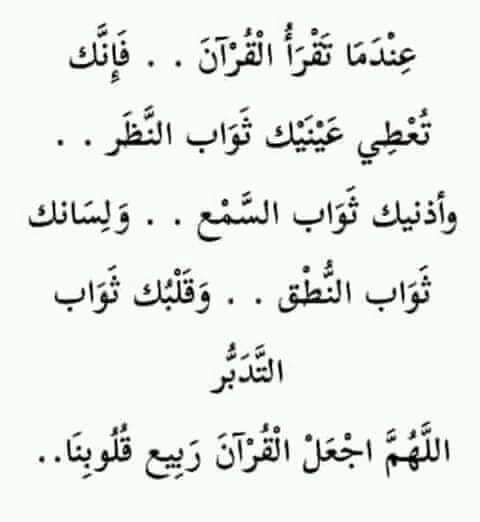 عِنْدَمَا تَقْرَأُ الْقُرْآنَ . . فَإِنَّك
تُعْطِي عَيْنَيْك ثَوَاب النَّظَر . .
وأذنيك ثَوَاب السَّمْع . . وَلِسَانك
ثَوَاب النُّطْق . . وَقَلْبُك ثَوَاب
التَّدَبُّر
اللَّهُمَّ اجْعَلْ الْقُرْآنَ رَبِيع قُلُوبِنَا..